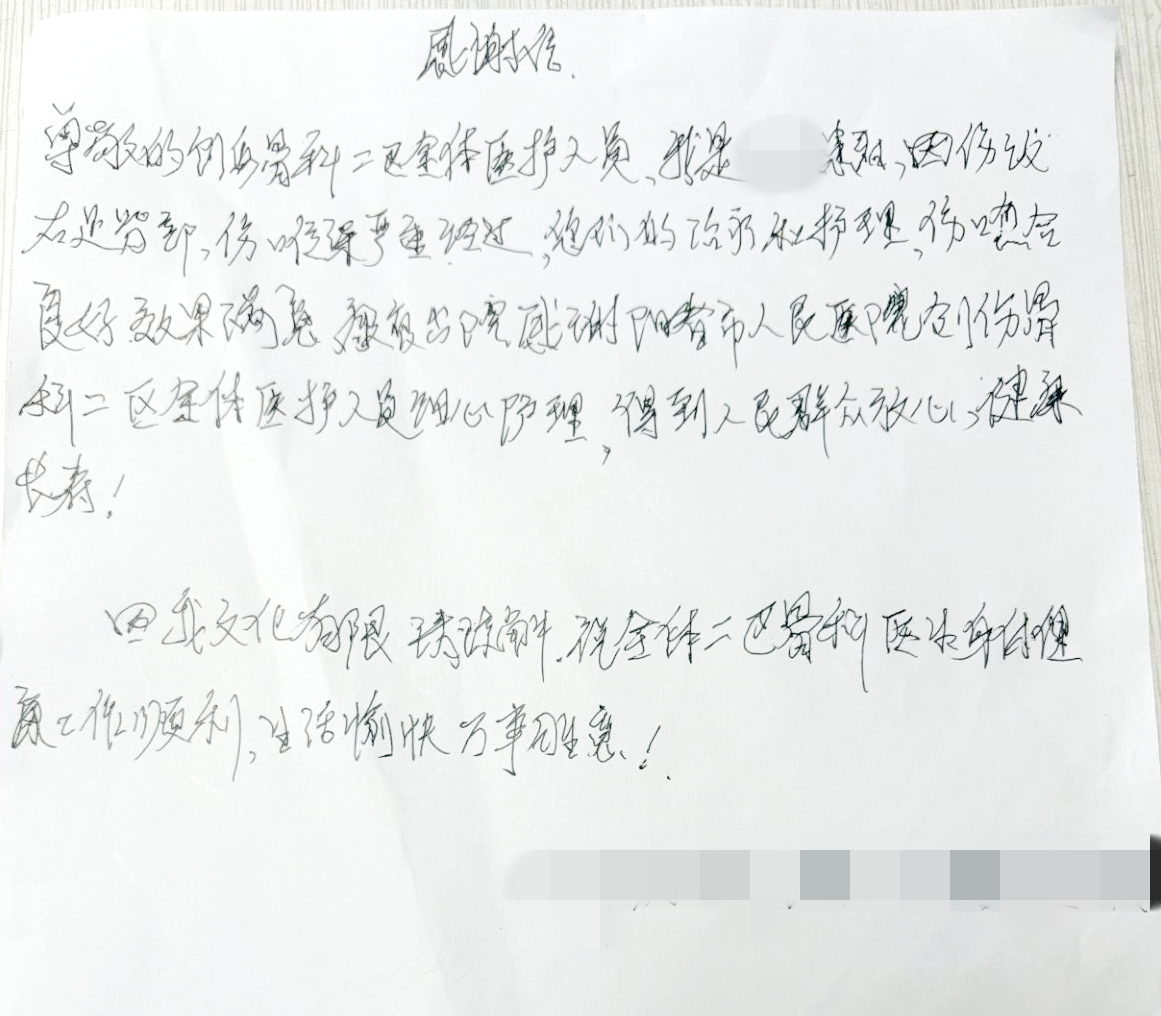 感谢信.
尊敬的创伤骨科二区全体医护人员、我是 来我、因伤致
右足背部,伤口很深严重经过,您们的治疗和护理,伤口愈合
良好效果满意 出院感谢阳春市人民医院创伤骨
科二区全体医护人员细心护理,得到人民群众放心、健康
长寿!
因我文化有限 请谅解.祝全体二区骨科医生身体健
康工作顺利,生活愉快万事胜意!